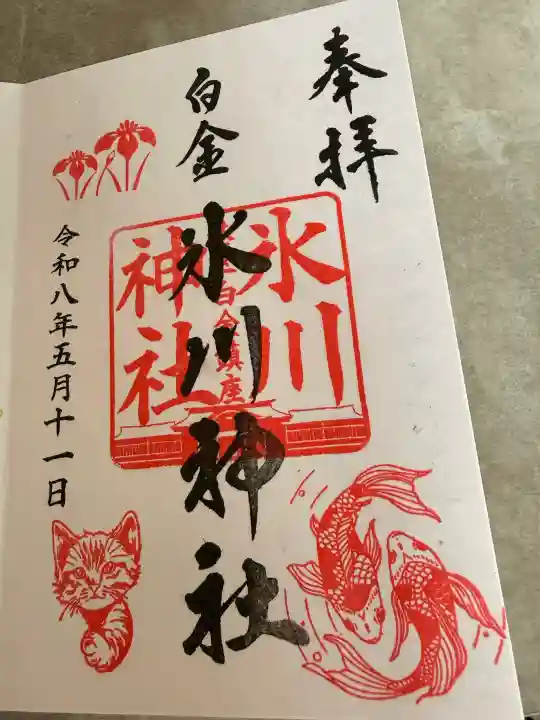 奉拝
白金
氷川神社
氷川
神社
白金鎮座
令和八年五月十一日